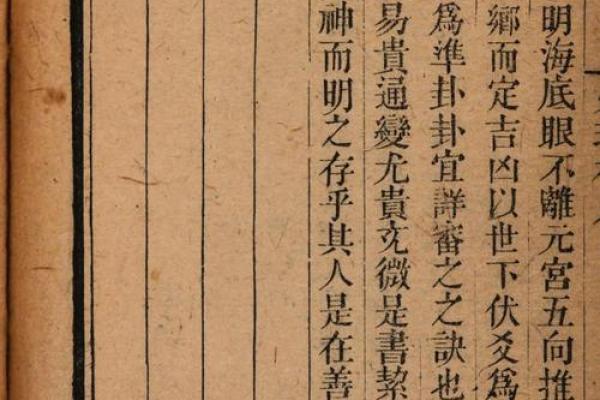 明海底眼不離元宮五向推
鄉而定吉凶以世下伏爻爲
爲準卦卦宜詳審之之訣也
易貴通變尤貴玄微是書絜
神而明之存乎其人是在善